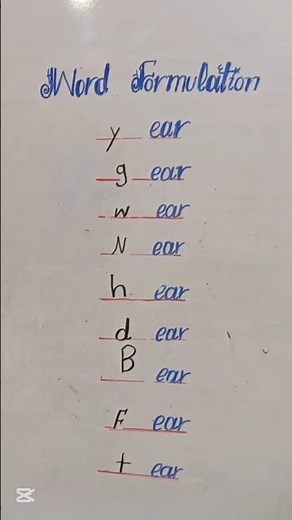 Word Formulation
y ear
g ear
w ear
N ear
h ear
d ear
B ear
F ear
t ear